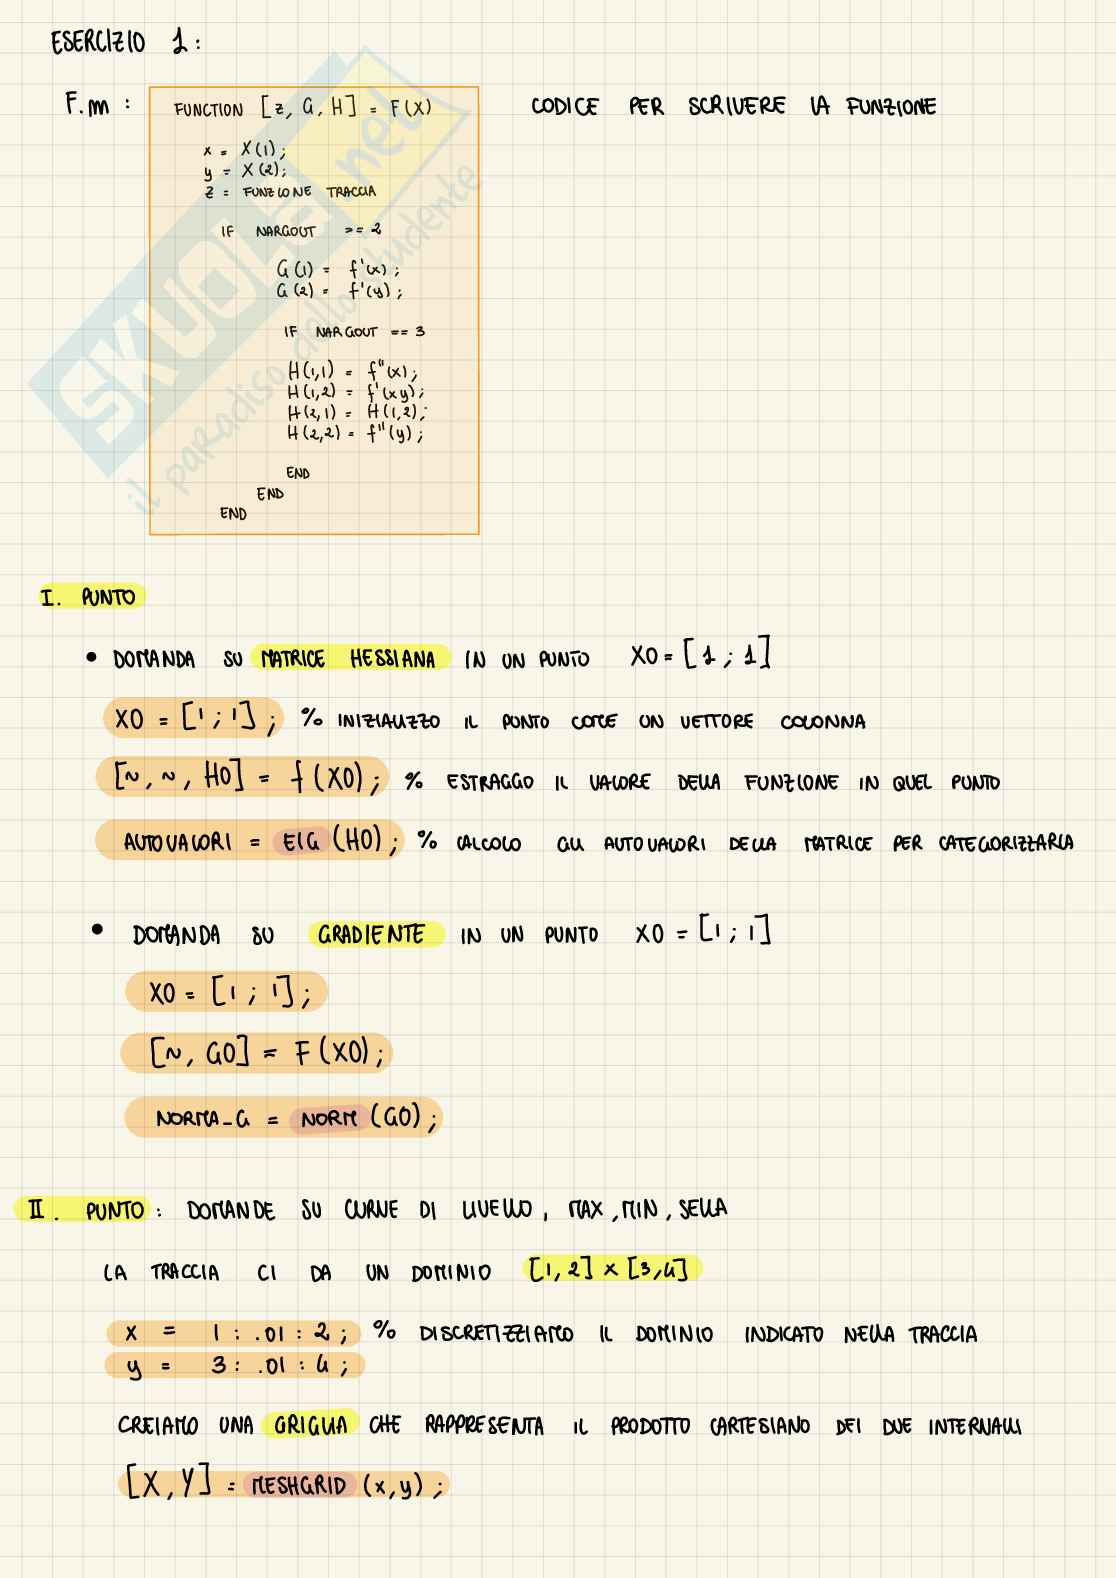 ESERCIZIO 1 :
F.m :
FUNCTION [z, G, H] = F(X)
CODICE PER SCRIVERE LA FUNZIONE
x = X(1);
y = X(2);
z = FUNZIONE TRACCIA
IF NARGOUT >= 2
G(1) = f'(x);
G(2) = f'(y);
IF NARGOUT == 3
H(1,1) = f''(x);
H(1,2) = f'(xy);
H(2,1) = H(1,2);
H(2,2) = f''(y);
END
END
END
SKUOLA.net
il paradiso dello studente
I. PUNTO
• DOMANDA SU MATRICE HESSIANA IN UN PUNTO X0 = [1 ; 1]
X0 = [1 ; 1] ; % INIZIALIZZO IL PUNTO COME UN VETTORE COLONNA
[~, ~, H0] = f(X0); % ESTRAGGO IL VALORE DELLA FUNZIONE IN QUEL PUNTO
AUTOVALORI = EIG(H0); % CALCOLO GLI AUTOVALORI DELLA MATRICE PER CATEGORIZZARLA
• DOMANDA SU GRADIENTE IN UN PUNTO X0 = [1 ; 1]
X0 = [1 ; 1];
[~, G0] = F(X0);
NORMA_G = NORM(G0);
II. PUNTO : DOMANDE SU CURVE DI LIVELLO, MAX, MIN, SELLA
LA TRACCIA CI DA UN DOMINIO [1,2] x [3,4]
x = 1 : .01 : 2 ; % DISCRETIZZIAMO IL DOMINIO INDICATO NELLA TRACCIA
y = 3 : .01 : 4 ;
CREIAMO UNA GRIGLIA CHE RAPPRESENTA IL PRODOTTO CARTESIANO DEI DUE INTERVALLI
[X, Y] = MESHGRID (x, y) ;